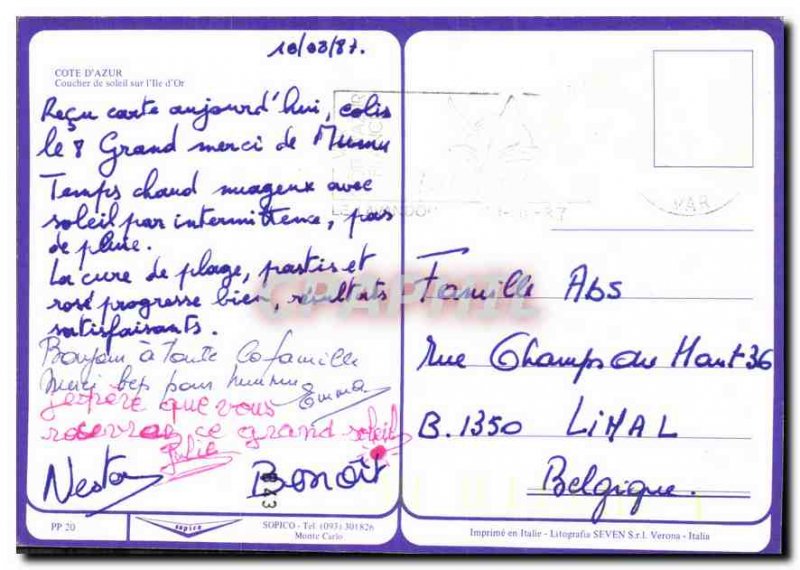 10/08/87.
COTE D'AZUR
Coucher de soleil sur l'Ile d'Or
Reçu carte aujourd'hui, colis
le 8 Grand merci de Mumu
Temps chaud nuageux avec
soleil par intermittence, pas
de pluie.
La cure de plage, pastis et
rosé progresse bien, résultats
satisfaisants.
Bonjour à Toute la famille
Merci bep pour mumu Emma
J'espère que vous
recevrez ce grand soleil
Julie
Nestor
Benoît
PP 20
sopico
SOPICO - Tel. (093) 301826
Monte Carlo
LE LAVANDOU
VAR
Famille Abs
rue Champs du Haut 36
B.1350 LIMAL
Belgique.
Imprimé en Italie - Litografia SEVEN S.r.l. Verona - Italia
CPAPHIL